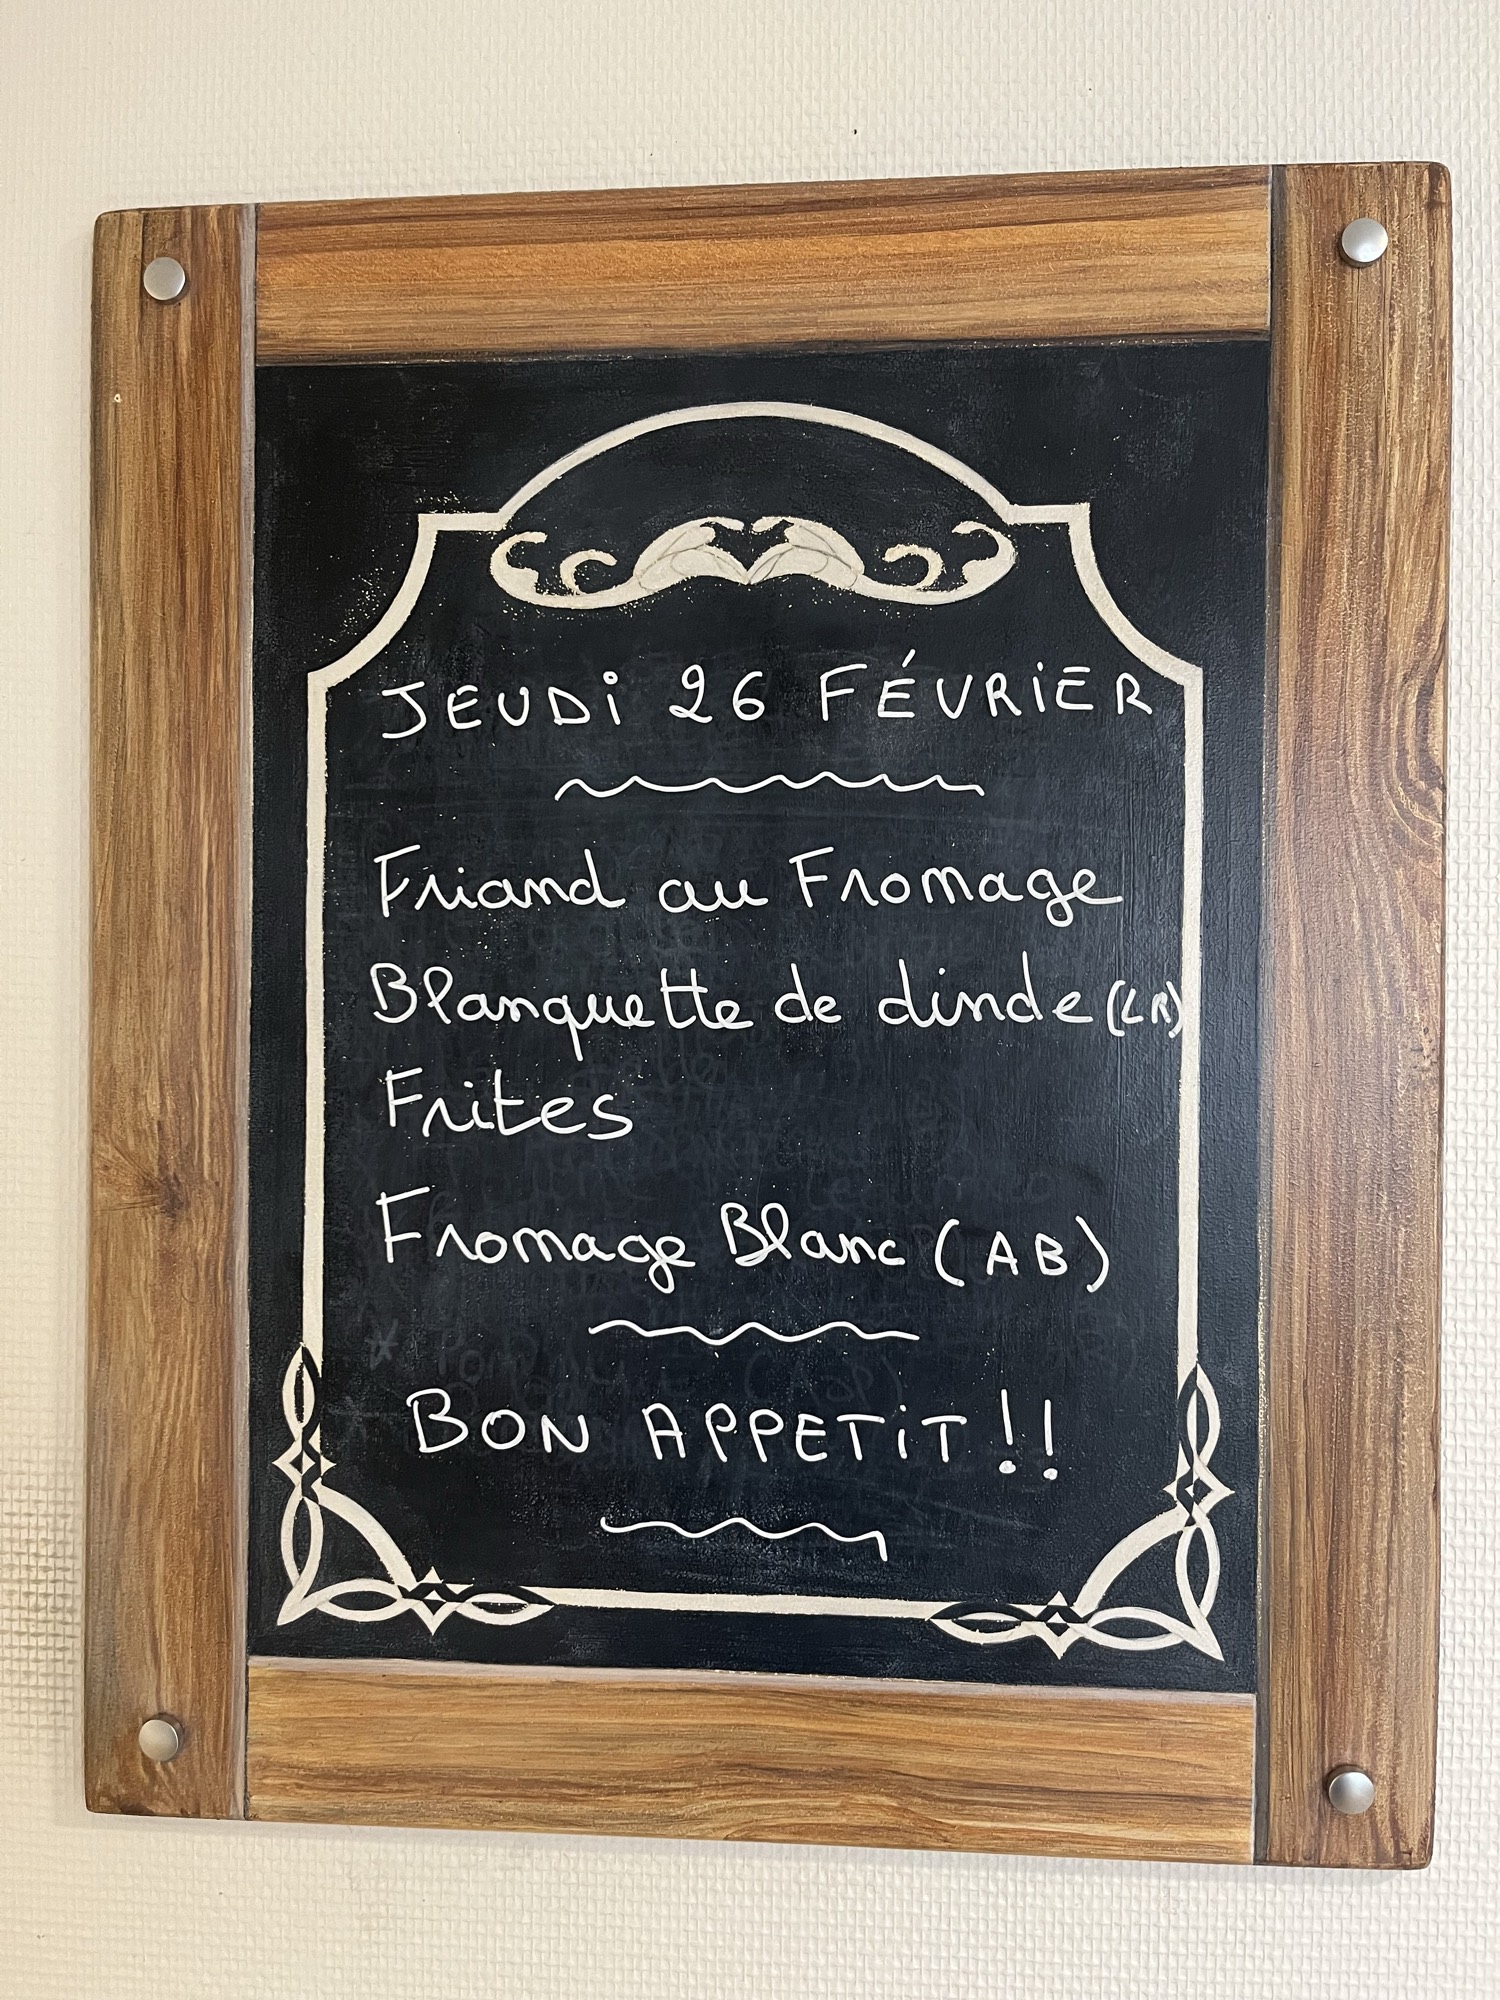 JEUDI 26 FÉVRIER
Friand au Fromage
Blanquette de dinde (LR)
Frites
Fromage Blanc (AB)
BON APPETIT !!